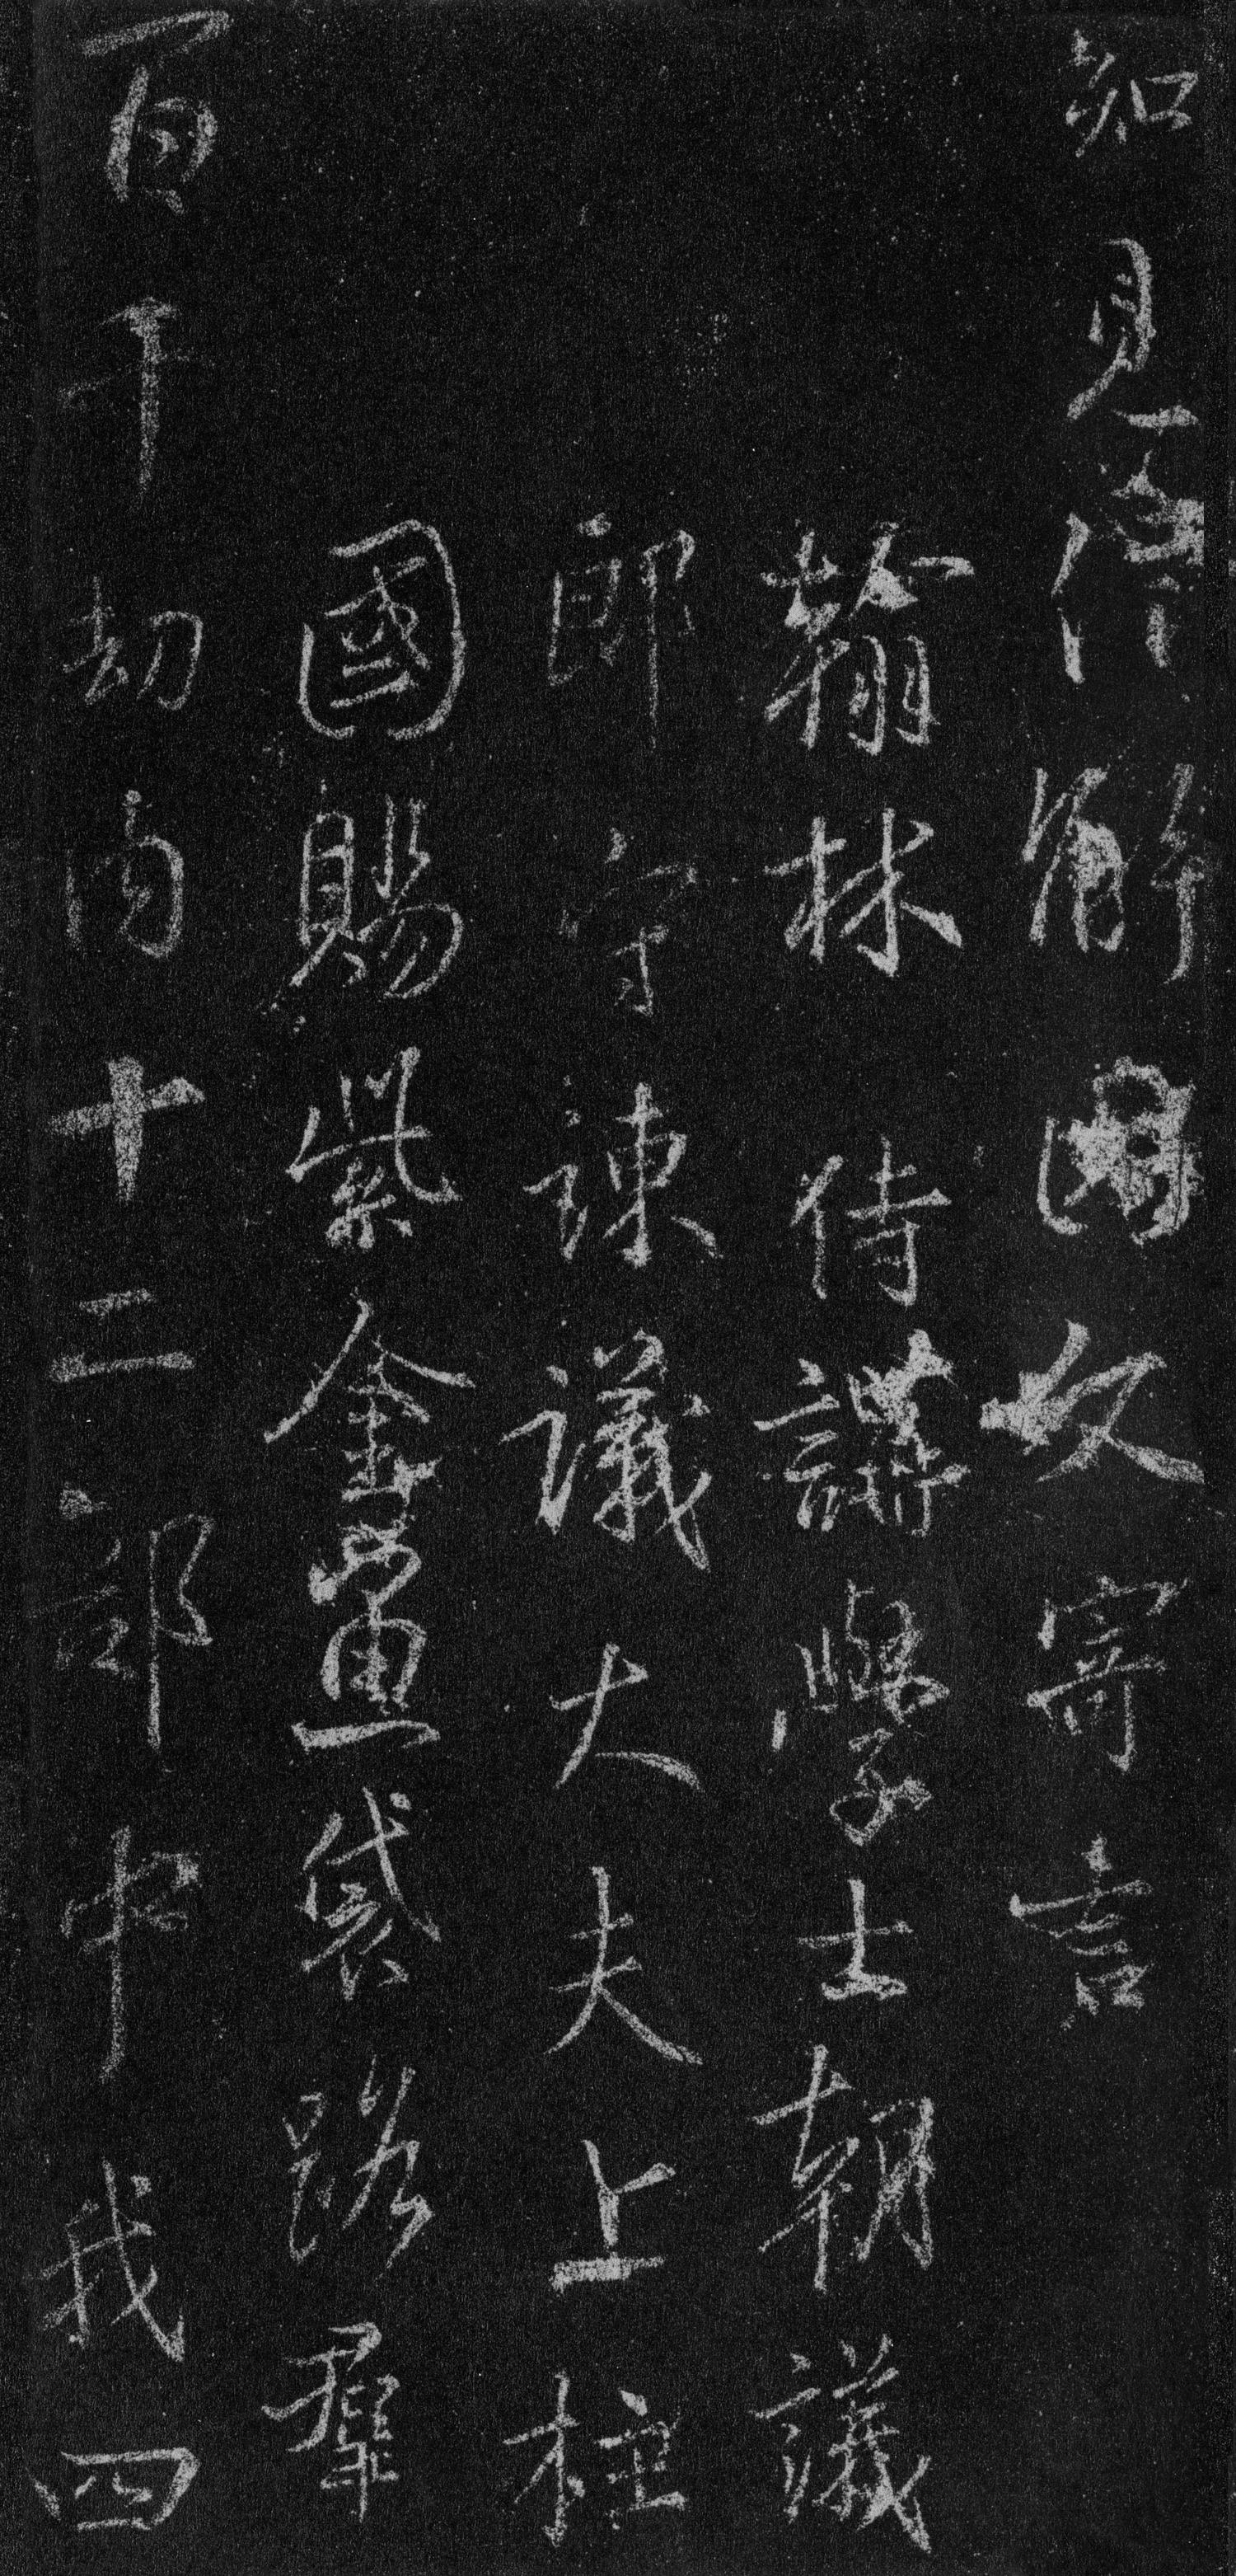 知見信解因奴寄言
翰林侍講學士朝議
郎守諫議大夫上柱
國賜紫金魚袋路群
百千劫內十二部中我四